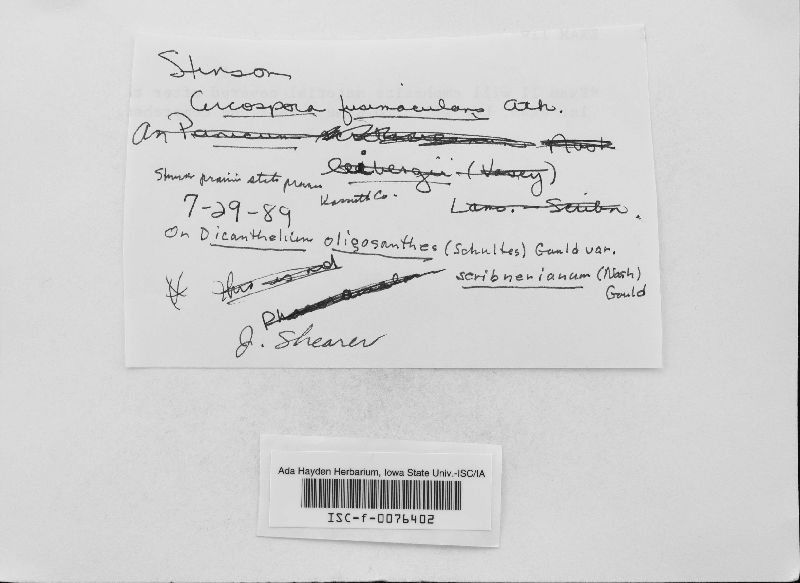 Stinson
Cercospora fusimaculans Atk.
On Panicum
leibergii (Vasey)
Stinson prairie state preserve
Kossuth Co.
7-29-89
Lams. - Scribn.
On Dicanthelium oligosanthes (Schultes) Gould var.
scribnerianum (Nash)
Gould
this is not
J. Shearer
Ada Hayden Herbarium, Iowa State Univ.-ISC/IA
ISC-f-0076402